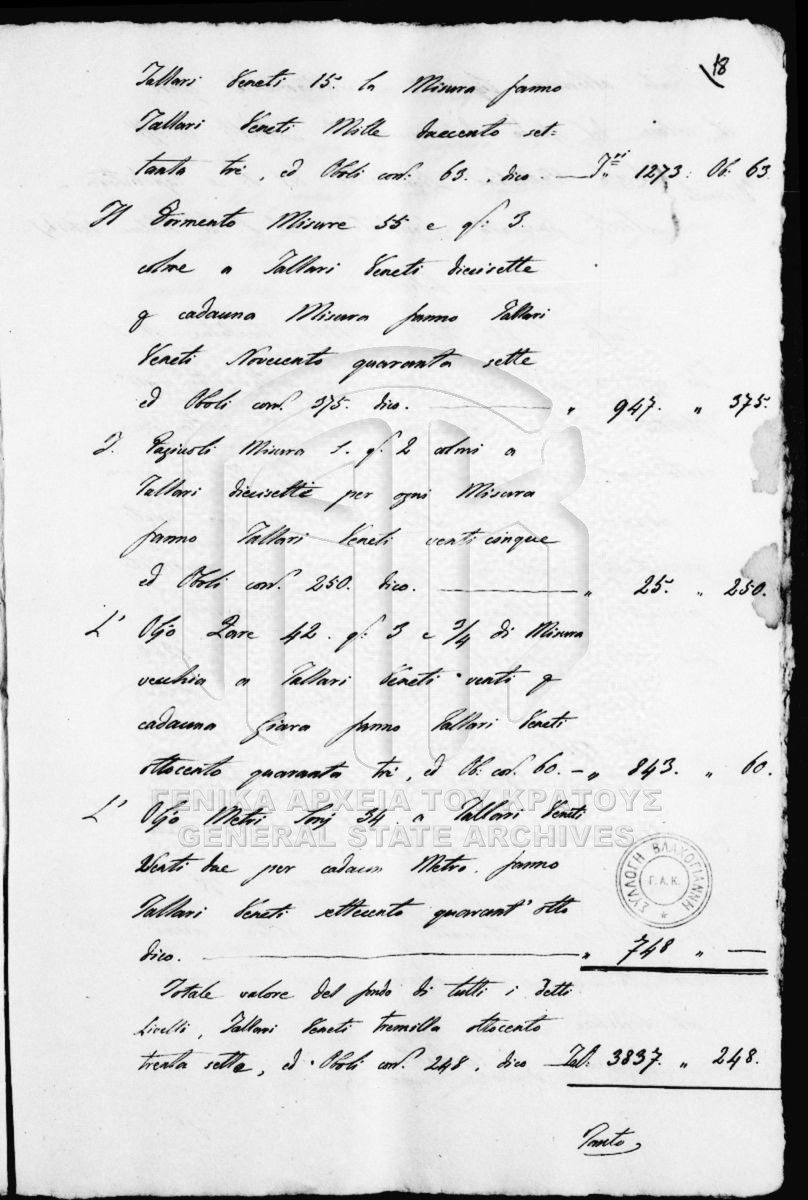 18
Tallari Veneti 15. la Misura fanno
Tallari Veneti Mille duecento set=
tanta tre, ed Oboli corr. 63. dico. — T.ri 1273: Ob: 63
Il Formento Misure 55 e q.: 3.
colme a Tallari Veneti diecisette
p cadauna Misura fanno Tallari
Veneti Novecento quaranta sette
ed Oboli corr. 375. dico. — " 947. " 375.
I. Fagiuoli Misura 1. q.: 2 colmi a
Tallari diecisette per ogni Misura
fanno Tallari Veneti venti cinque
ed Oboli corr. 250. dico. — " 25. " 250.
L' Oljo Zare 42. q.: 3 e 3/4 di Misura
vecchia a Tallari Veneti venti p
cadauna Giara fanno Tallari Veneti
ottocento quaranta tre, ed Ob: cor. 60. — " 843. " 60.
L' Oljo Metri 34. a Tallari Veneti
Venti due per cadaun Metro. fanno
Tallari Veneti settecento quarant' otto
dico. — " 748 " —
Totale valore del fondo di tutti i detti
Livelli, Tallari Veneti tremilla ottocento
trenta sette, ed Oboli corr. 248. dico Tal: 3837. " 248.
Tanto
ΓΕΝΙΚΑ ΑΡΧΕΙΑ ΤΟΥ ΚΡΑΤΟΥΣ
GENERAL STATE ARCHIVES
ΣΥΛΛΟΓΗ ΒΛΑΧΟΓΙΑΝΝΗ
Γ.Α.Κ.